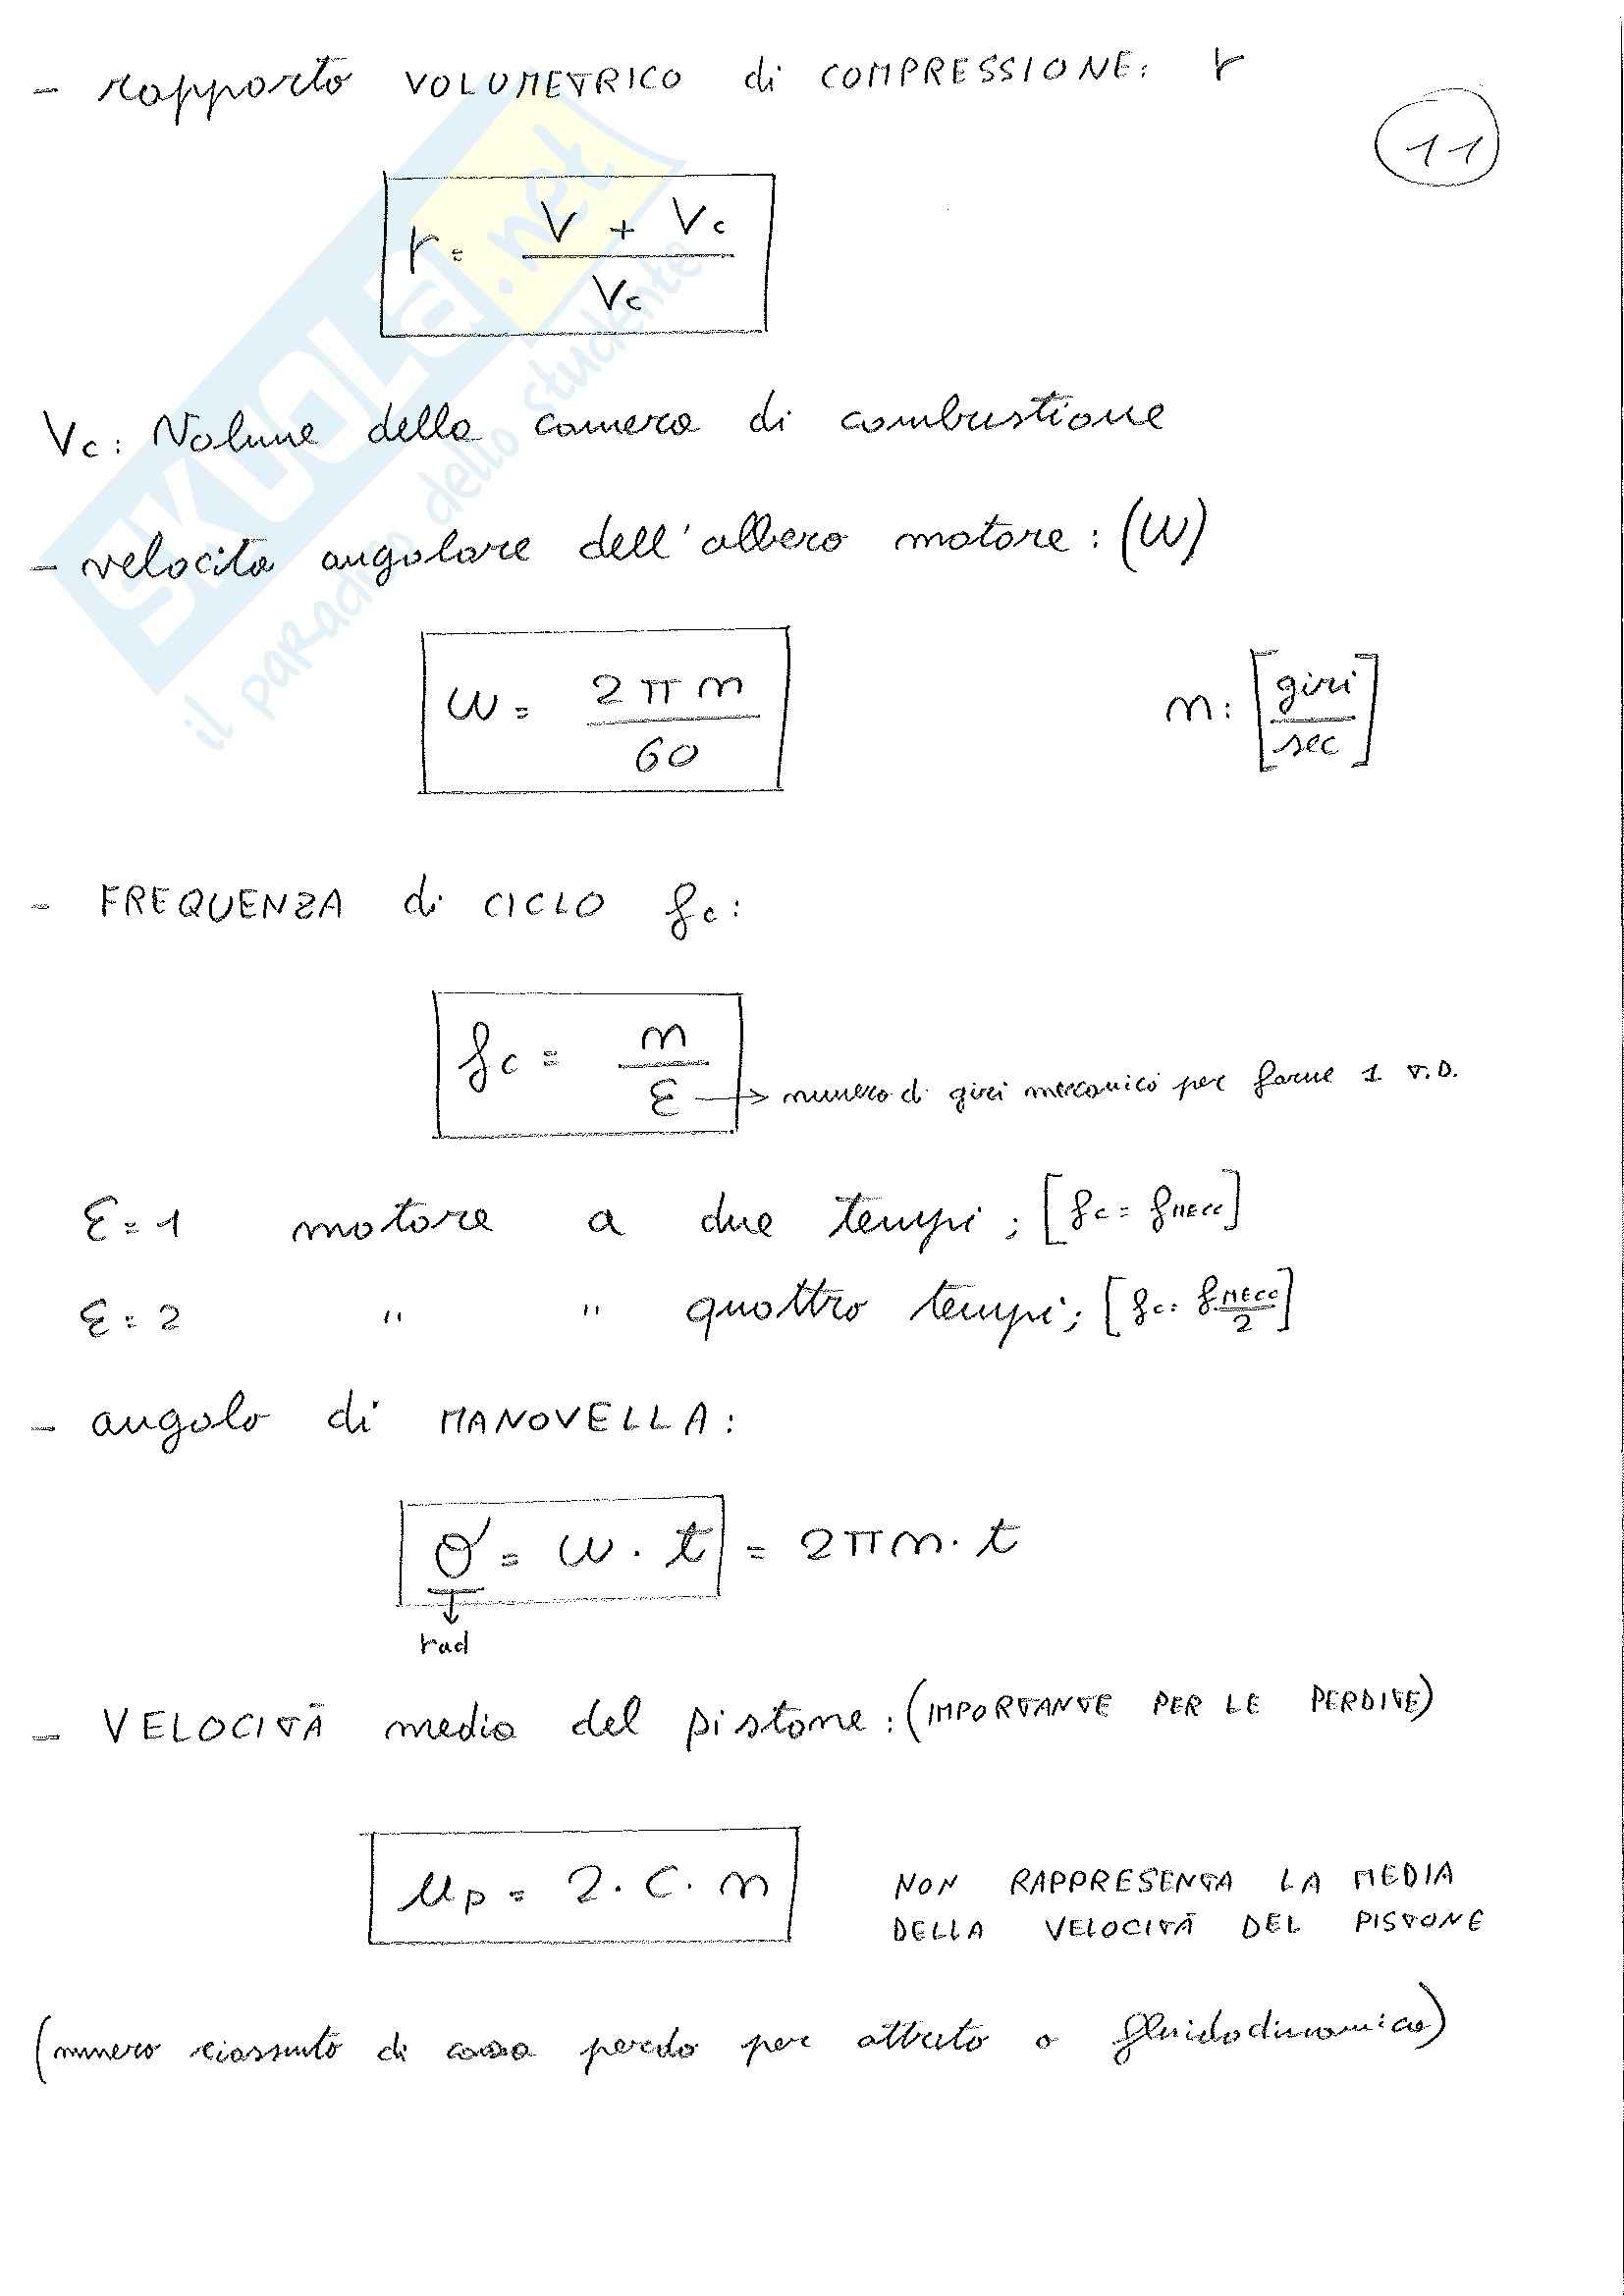 - rapporto VOLUMETRICO di COMPRESSIONE: r
11
r = V + Vc / Vc
Vc: Volume della camera di combustione
- velocita angolare dell'albero motore: (ω)
ω = 2 π n / 60
n: [giri / sec]
- FREQUENZA di CICLO fc:
fc = n / ε → numero di giri meccanici per farne 1 T.D.
ε = 1 motore a due tempi; [fc = fMECC]
ε = 2 " " quattro tempi; [fc = fMECC / 2]
- angolo di MANOVELLA:
θ = ω · t = 2πn · t
rad
- VELOCITÀ media del pistone: (IMPORTANTE PER LE PERDITE)
up = 2 · C · n
NON RAPPRESENTA LA MEDIA
DELLA VELOCITÀ DEL PISTONE
(numero riassunto di cosa perdo per attrito o fluidodinamica)
SKUOLA.net
il paradiso dello studente